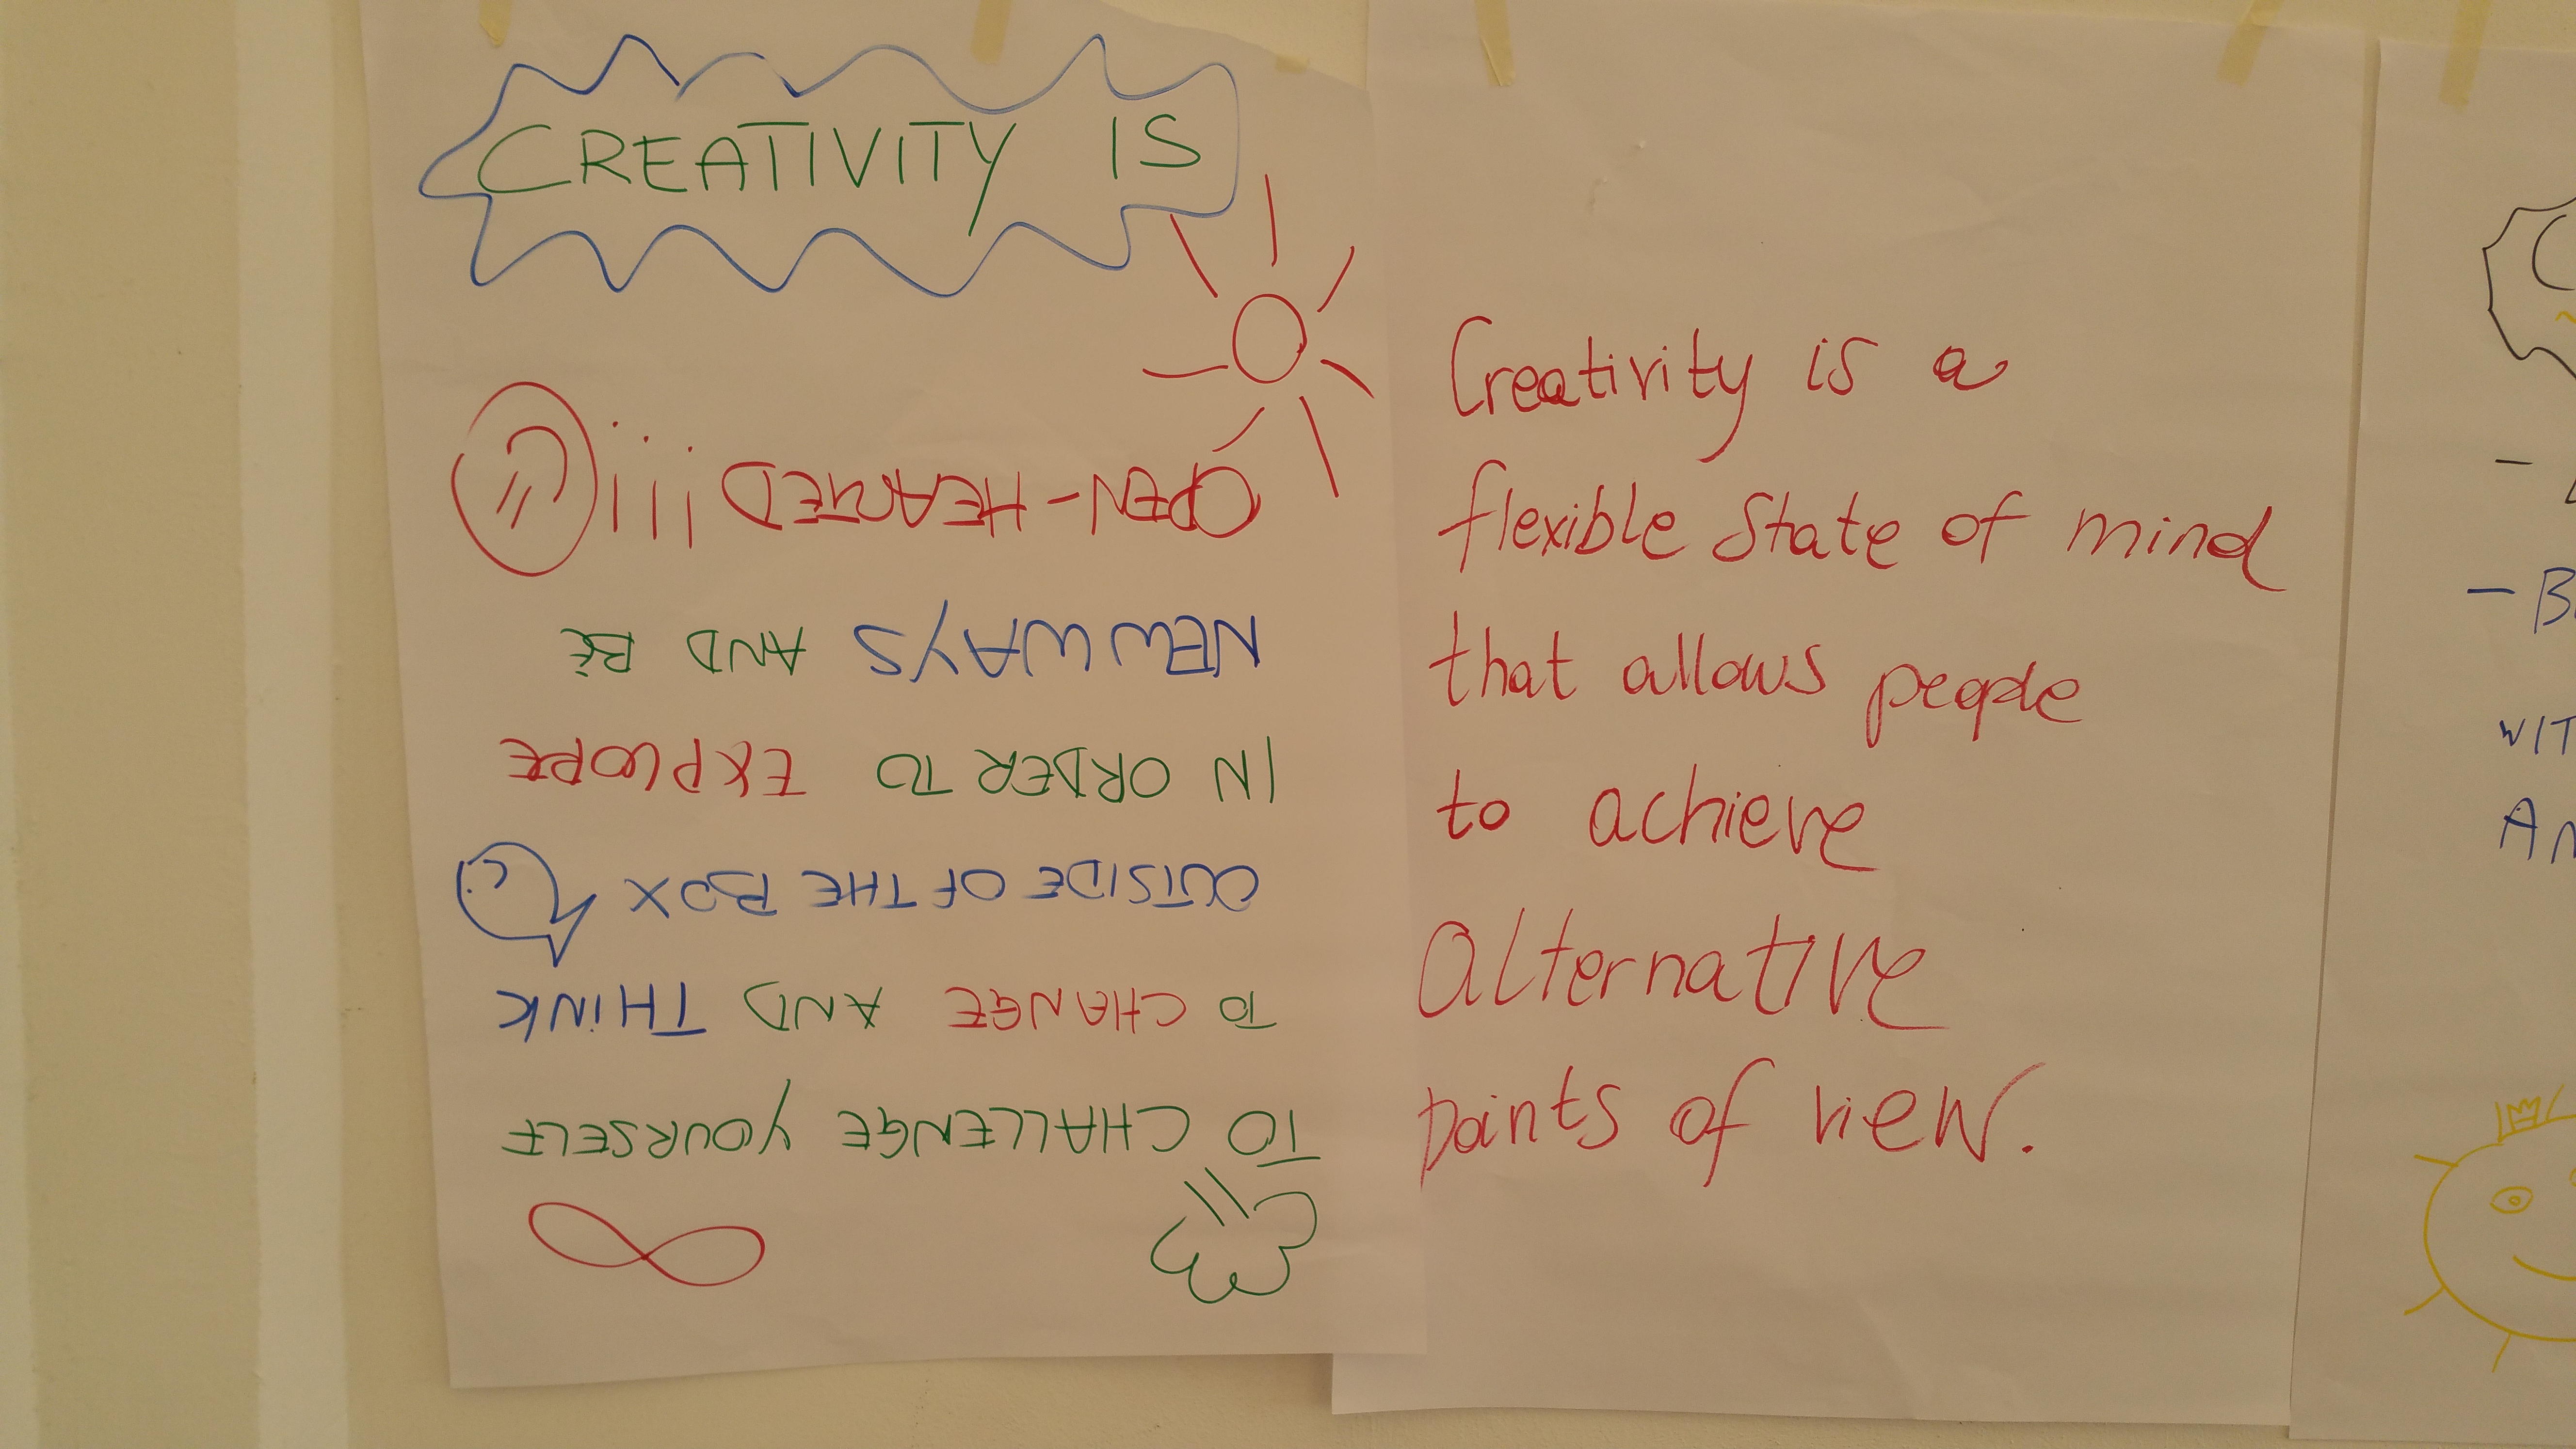 CREATIVITY IS
TO CHALLENGE YOURSELF
TO CHANGE AND THINK
OUTSIDE OF THE BOX
IN ORDER TO EXPLORE
NEW WAYS AND BE
OPEN-HEARTED !!!
Creativity is a
flexible state of mind
that allows people
to achieve
alternative
points of view.
- B
WIT
AN